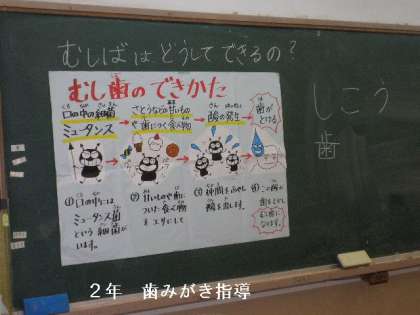 むしばはどうしてできるの?
むし歯のできかた
口の中の細菌
ミュータンス
さとうなどの甘いもの
や歯につく食べ物
酸の発生
歯が
とける
①口の中には
ミュータンス菌
という細菌が
います。
②甘いものや歯に
ついた食べ物
をエサにして
③仲間をふやし
酸を出します。
④この酸が
歯をとかし
むし歯に
なります。
しこう
歯
2年 歯みがき指導